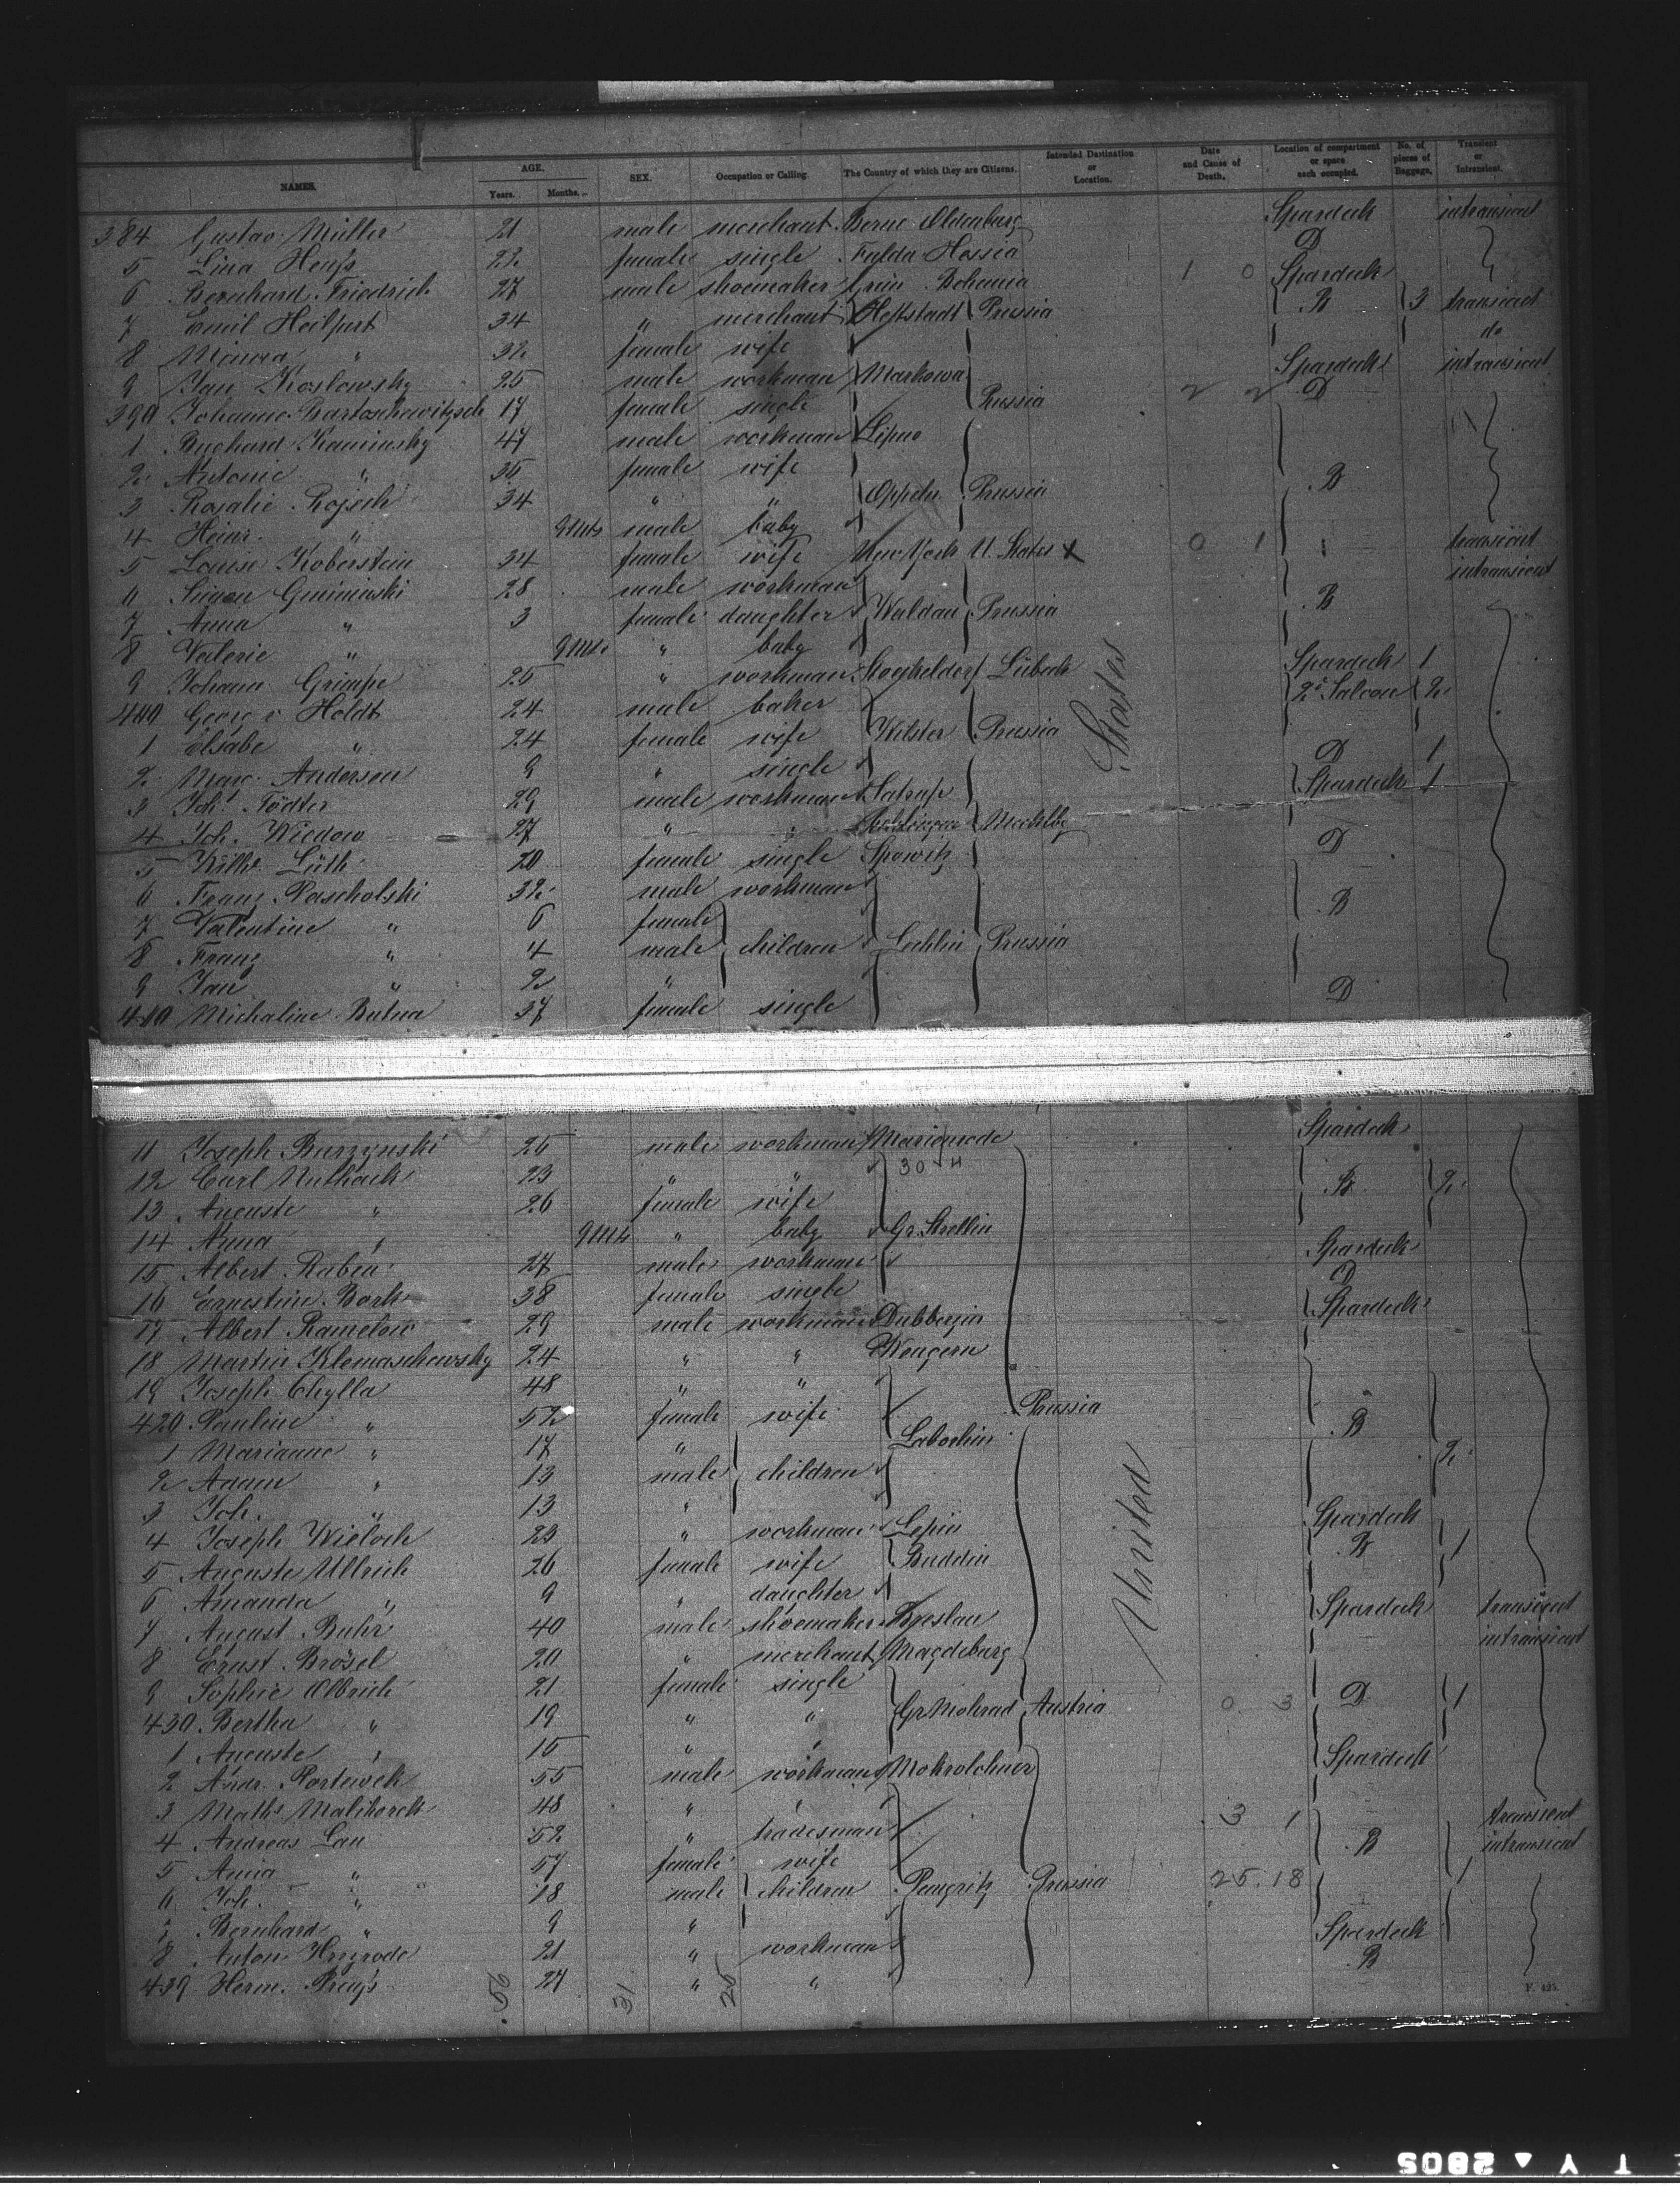 NAMES. AGE. Years. Months. SEX. Occupation or Calling. The Country of which they are Citizens. Intended Destination or Location. Date and Cause of Death. Location of compartment or space each occupied. No. of pieces of Baggage. Transient or Intransient.
384 Gustav Müller 21 male merchant Berne Oldenburg Spardeck intransient
5 Lina Henß 22 female single Fulda Hessia D
6 Bernhard Friedrich 27 male shoemaker Grün Bohemia 1 0 Spardeck
7 Emil Heilfurt 34 " merchant Hettstadt Prussia B 3 transient
8 Minna " 32 female wife do
9 Jan Koslowsky 25 male workman Markowa Spardeck intransient
390 Johanne Bartoschewitzsch 17 female single Russia 2 2 D
1 Bughard Kaminsky 47 male workman Lipno
2 Antonie " 35 female wife B
3 Rosalie Rojeck 34 " " Oppeln Prussia
4 Heinr. " 9 Mts male baby
5 Louise Koberstein 34 female wife New York U. States X 0 1 transient
6 Simon Guiniwski 28 male workman intransient
7 Anna " 3 female daughter Waldau Prussia B
8 Valerie " 9 Mts " baby
9 Johann Grimpe 25 " workman Stockelsdorf Lübeck Spardeck 1
400 Georg v. Holdt 24 male baker 2d Saloon 2
1 Elsabe " 24 female wife Wilster Prussia
2 Marg. Andersen 9 " single D 1
3 Joh. Tödter 29 male workman Satrup Spardeck 1
4 Joh. Wiedow 27 " " Mecklbg
5 Kath. Lüth 20 female single Spowitz D
6 Franz Pascholski 32 male workman
7 Valentine " 6 female B
8 Franz " 4 male children Lechlin Prussia
9 Jan " 2 "
410 Michaline Butna 37 female single D
States
11 Joseph Burzynski 25 male workman Marienrode Spardeck
12 Carl Muthack 23 " " 30 4
13 Auguste " 26 female wife B 2
14 Anna " 9 Mts " baby Gr. Strellin
15 Albert Raben 27 male workman Spardeck
16 Ernestine Bork 38 female single D
17 Albert Ramelow 29 male workman Dubberzin Spardeck
18 Martin Klemaschewsky 24 " " Wengern
19 Joseph Chylla 48 " "
420 Pauline " 52 female wife Prussia B
1 Marianne " 17 " Labochin
2 Adam " 13 male children 2
3 Joh. " 13 "
4 Joseph Wieloch 23 " workman Lepin Spardeck
5 Auguste Ullrich 26 female wife Buddin B 1
6 Amanda " 9 " daughter
7 August Buhr 40 male shoemaker Breslau Spardeck transient
8 Ernst Brösel 20 " merchant Magdeburg intransient
9 Sophie Olbrich 21 female single
430 Bertha " 19 " " Gr Mohrad Austria 0 3 D 1
1 Auguste " 15 " "
2 Andr. Portewek 55 male workman Mokrolohner Spardeck
3 Maths Malikorek 48 " "
4 Andreas Lau 52 " tradesman 3 1 transient
5 Anna " 57 female wife B intransient
6 Joh. " 18 male children Pangritz Prussia 25.18 1
7 Bernhard " 9 "
8 Anton Hrzrode 21 " workman Spardeck
439 Herm. Preuß 27 " " B
United
56 31 25
F. 425.
T Y ▲ 2805